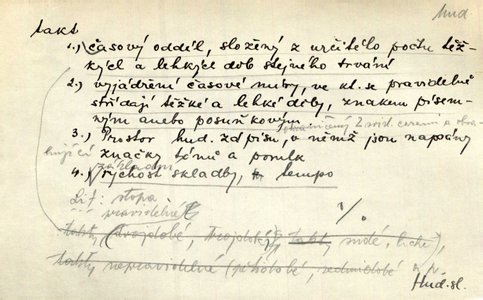 hud.
takt
1.) časový oddíl, složený z určitého počtu těž-
kých a lehkých dob stejného trvání
2.) vyjádření časové míry, ve kt. se pravidelně
střídají těžké a lehké doby, znakem písem-
ným anebo posuňkovým
3.) Prostor hud. zápisu, v němž jsou napsány
značky tónů a pomlk
základní
4.) rychlost skladby, tempo
Lif: stopa
pravidelné
takty (dvojdobé, trojdobé) takty sudé, liché),
takty nepravidelné (pětidobé, sedmidobé
Hud. sl.